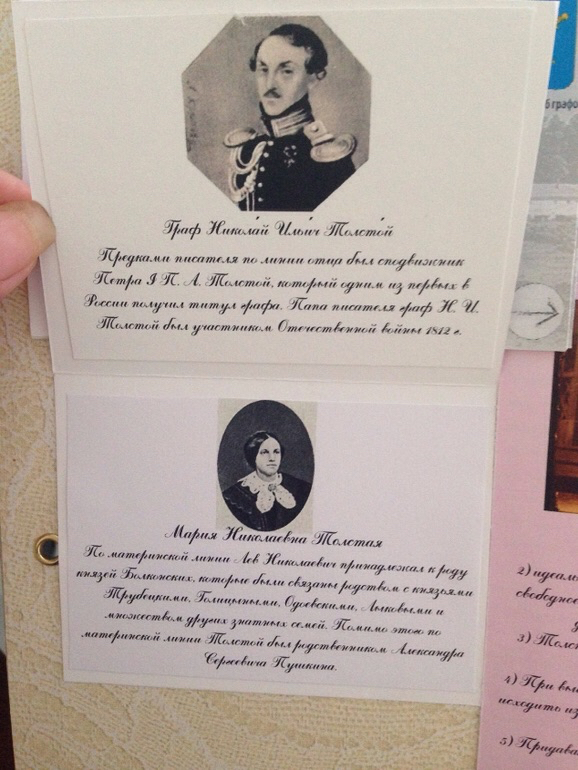 Граф Никола́й Ильи́ч Толсто́й
Предками писателя по линии отца был сподвижник
Петра I П. А. Толстой, который одним из первых в
России получил титул графа. Папа писателя граф Н. И.
Толстой был участником Отечественной войны 1812 г.
Мария Николаевна Толстая
По материнской линии Лев Николаевич принадлежал к роду
князей Болконских, которые были связаны родством с князьями
Трубецкими, Голицыными, Одоевскими, Лыковыми и
множеством других знатных семей. Помимо этого по
материнской линии Толстой был родственником Александра
Сергеевича Пушкина.
2) идеаль
свободнос
3) Толс
4) При вы
исходить из
5) Придава